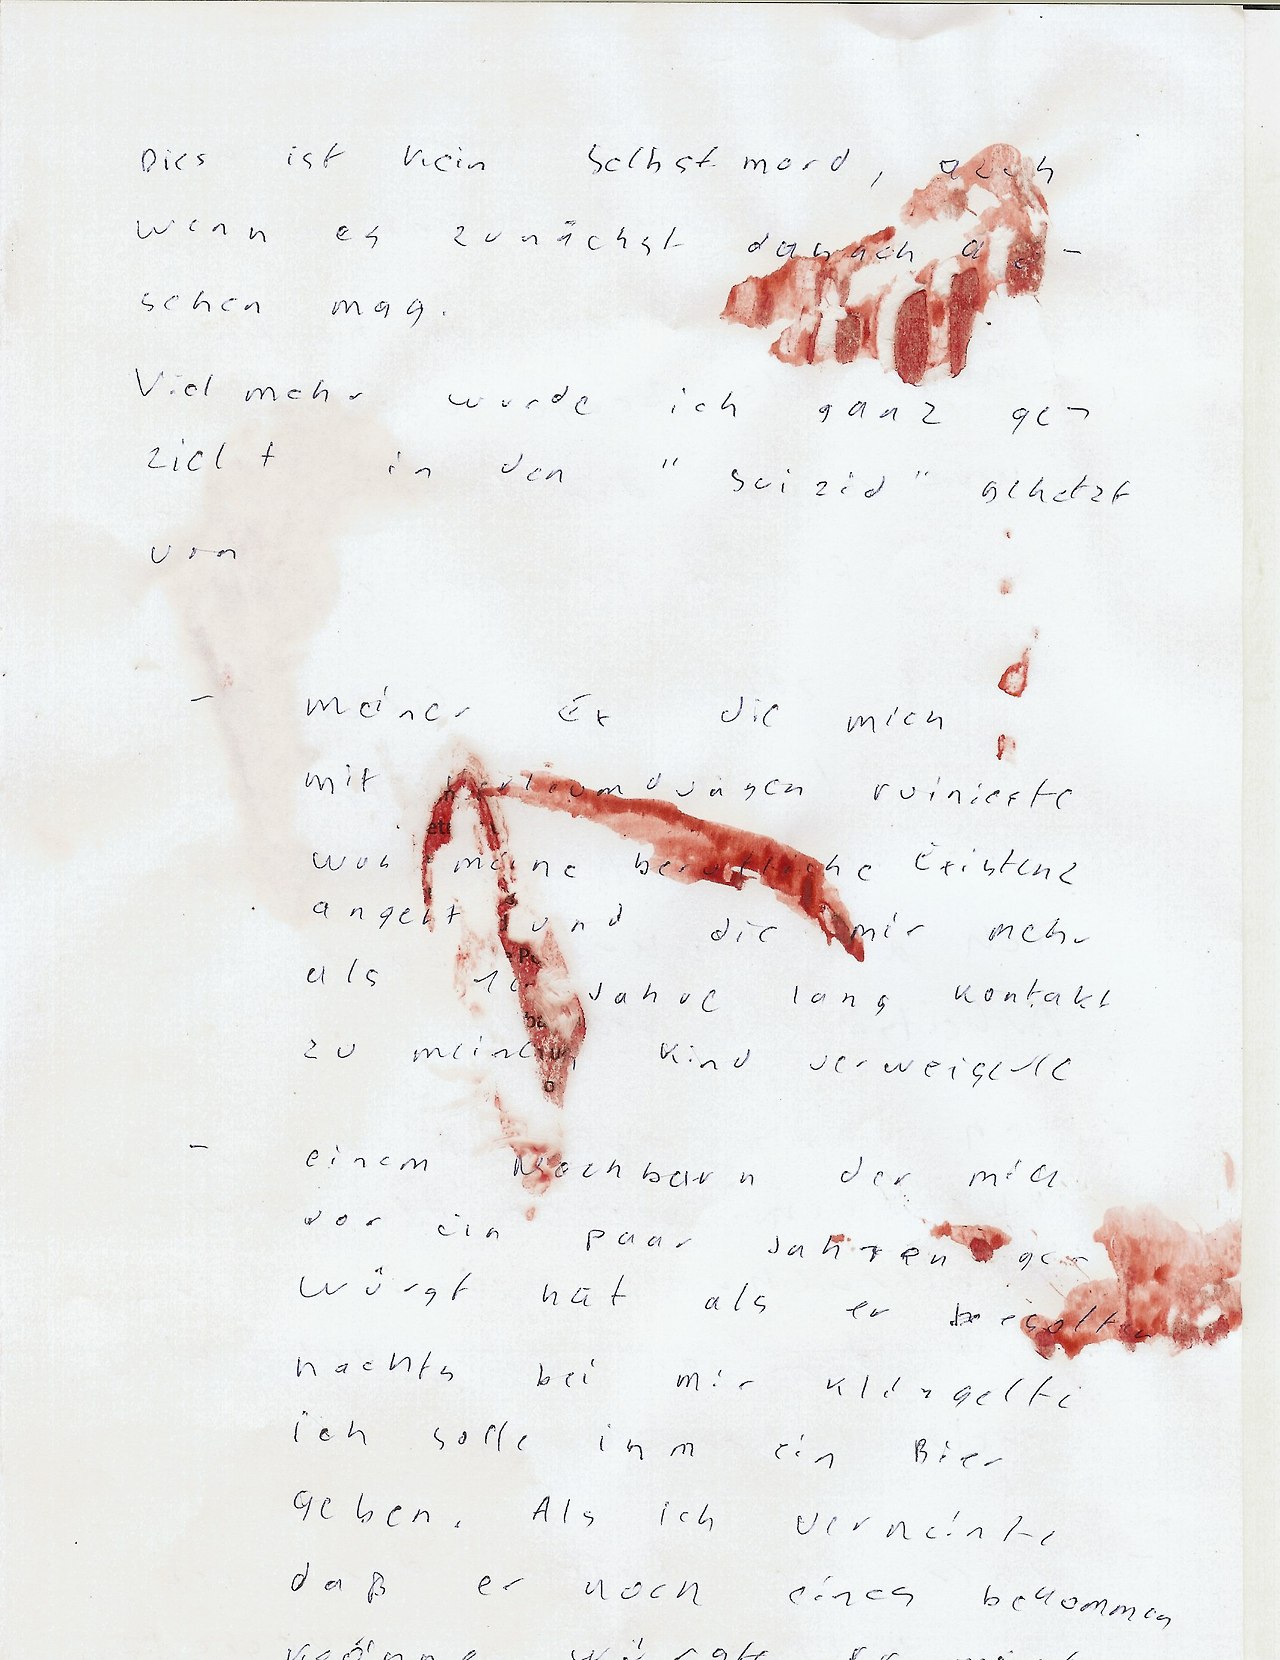 Dies ist kein Selbstmord, auch
wenn es zunächst danach aus-
sehen mag.
Vielmehr wurde ich ganz ge-
zielt in den "Suizid" gehetzt
von
- meiner Ex die mich
mit Verleumdungen ruinierte
was meine berufliche Existenz
angeht und die mir mehr
als Jahre lang Kontakt
zu meinem Kind verweigerte
- einem Nachbarn der mich
vor ein paar Jahren ge-
würgt hat als er besoffen
nachts bei mir klingelte
ich solle ihm ein Bier
geben. Als ich verneinte
daß er noch eines bekommen
könne würgte er mich